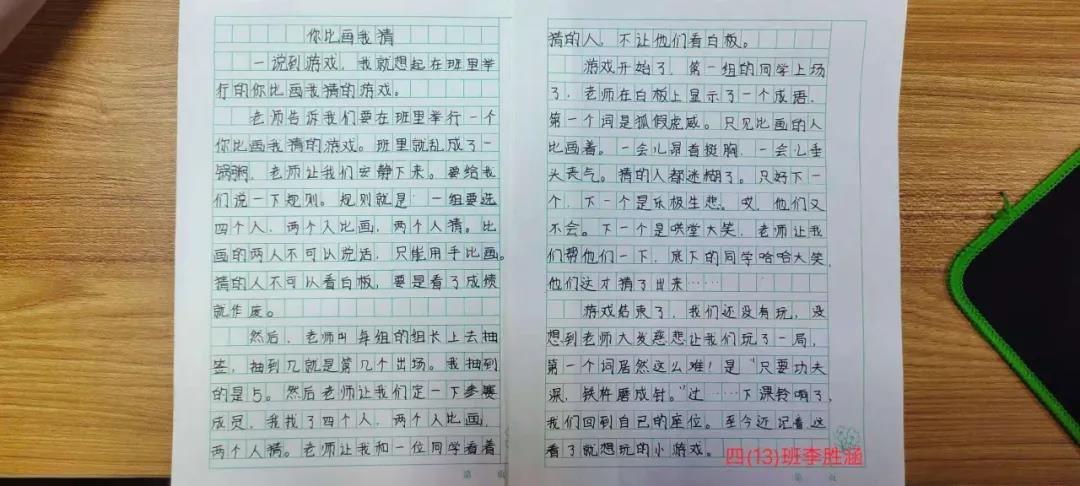 你比画我猜
一说到游戏，我就想起在班里举
行的你比画我猜的游戏。
老师告诉我们要在班里举行一个
你比画我猜的游戏。班里就乱成了一
锅粥，老师让我们安静下来。要给我
们说一下规则。规则就是：一组要选
四个人，两个人比画，两个人猜。比
画的两人不可以说话，只能用手比画。
猜的人不可以看白板，要是看了成绩
就作废。
然后，老师叫每组的组长上去抽
签，抽到几就是第几个出场。我抽到
的是5。然后老师让我们定一下参赛
成员，我找了四个人，两个人比画，
两个人猜。老师让我和一位同学看着
猜的人。不让他们看白板。
游戏开始了，第一组的同学上场
了，老师在白板上显示了一个成语，
第一个词是狐假虎威。只见比画的人
比画着。一会儿昂首挺胸，一会儿垂
头丧气。猜的人都迷糊了。只好下一
个，下一个是乐极生悲。哎，他们又
不会。下一个是哄堂大笑，老师让我
们帮他们一下，底下的同学哈哈大笑，
他们这才猜了出来……
游戏结束了，我们还没有玩，没
想到老师大发慈悲让我们玩了一局，
第一个词居然这么难！是“只要功夫
深，铁杵磨成针。”过……下课铃响了，
我们回到自己的座位。至今还记着这
看了就想玩的小游戏。
四(13)班李胜涵
第 页
第 页